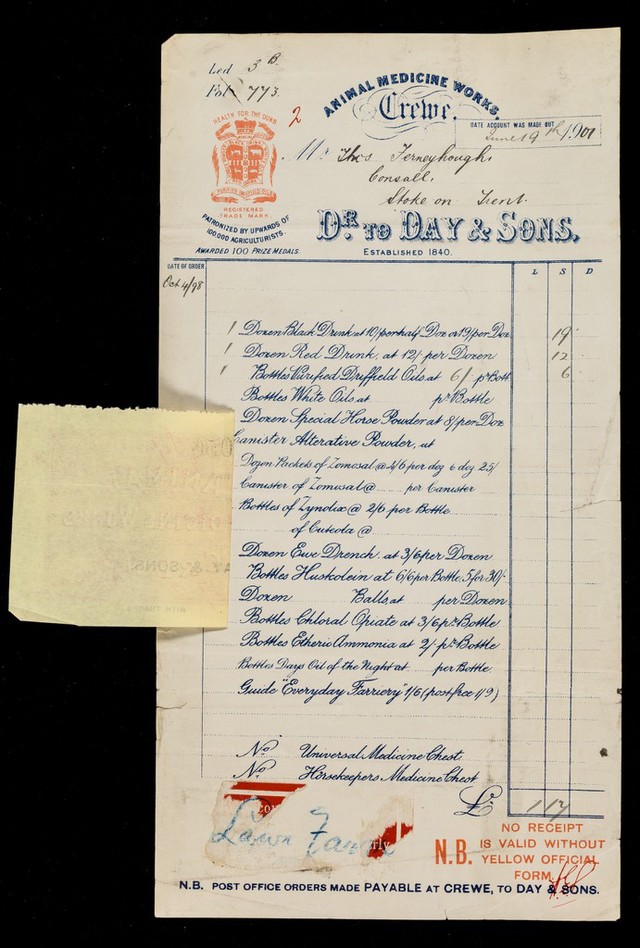 Led 3 B.
Fol 773.
2
ANIMAL MEDICINE WORKS,
Crewe.
DATE ACCOUNT WAS MADE OUT
June 19th 1901
HEALTH FOR THE DUMB
REGISTERED
TRADE MARK
PATRONIZED BY UPWARDS OF
100,000 AGRICULTURISTS.
AWARDED 100 PRIZE MEDALS.
Mr Thos Ferneyhough,
Consall,
Stoke on Trent.
DR. TO DAY & SONS,
ESTABLISHED 1840.
DATE OF ORDER
L S D
Oct 4/98
1 Dozen Black Drink at 10/ per half Doz or 19/ per Doz 19
1 Dozen Red Drink, at 12/- per Dozen 12
1 Bottles Purified Driffield Oils at 6/ pr Bott 6
Bottles White Oils at pr Bottle
Dozen Special Horse Powder at 8/ per Doz
Canister Alterative Powder, at
Dozen Packets of Zomosal @ 4/6 per doz 6 doz 25/
Canister of Zomosal @ per Canister
Bottles of Zyndix @ 2/6 per Bottle
of Cuteola @
Dozen Ewe Drench at 3/6 per Dozen
Bottles Huskolein at 6/6 per Bottle, 5 for 30/-
Dozen Balls, at per Dozen
Bottles Chloral Opiate at 3/6 pr. Bottle
Bottles Etheric Ammonia at 2/- pr. Bottle
Bottles Days Oil of the Night at per Bottle
Guide "Everyday Farriery" 1/6 (post free 1/9)
No. Universal Medicine Chest.
No. Horsekeepers Medicine Chest
£ 1 17
N.B. NO RECEIPT
IS VALID WITHOUT
YELLOW OFFICIAL
FORM.
N.B. POST OFFICE ORDERS MADE PAYABLE AT CREWE, TO DAY & SONS.